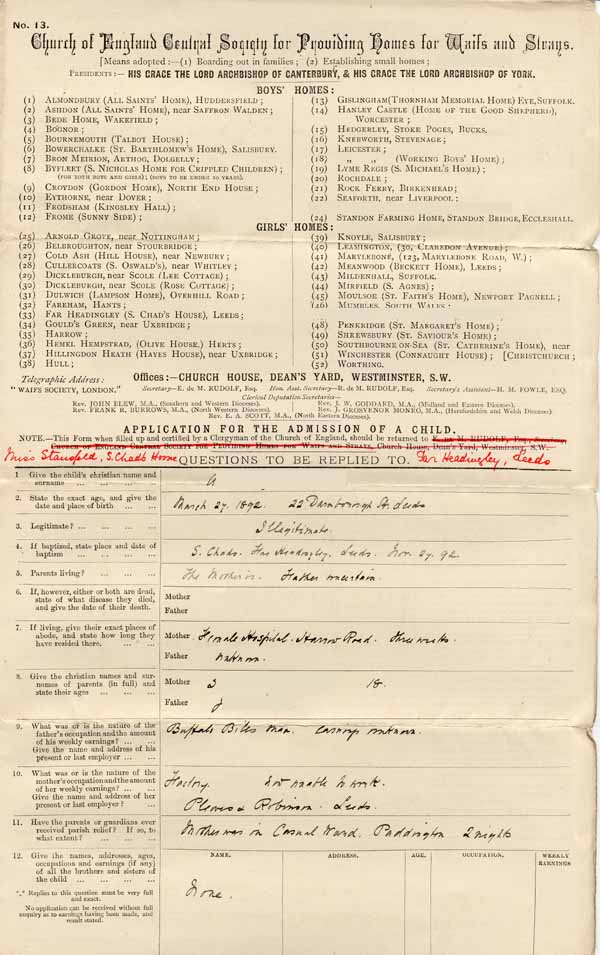 No. 13.
Church of England Central Society for Providing Homes for Waifs and Strays.
[Means adopted:—(1) Boarding out in families; (2) Establishing small homes;
PRESIDENTS:— HIS GRACE THE LORD ARCHBISHOP OF CANTERBURY, & HIS GRACE THE LORD ARCHBISHOP OF YORK.
BOYS' HOMES:
(1) ALMONDBURY (ALL SAINTS' HOME), HUDDERSFIELD;
(2) ASHDON (ALL SAINTS' HOME), near SAFFRON WALDEN;
(3) BEDE HOME, WAKEFIELD;
(4) BOGNOR;
(5) BOURNEMOUTH (TALBOT HOUSE);
(6) BOWERCHALKE (ST. BARTHOLOMEW'S HOME), SALISBURY.
(7) BRON MEIRION, ARTHOG, DOLGELLY;
(8) BYFLEET (S. NICHOLAS HOME FOR CRIPPLED CHILDREN);
(FOR BOTH BOYS AND GIRLS); (BOYS TO BE UNDER 10 YEARS).
(9) CROYDON (GORDON HOME), NORTH END HOUSE;
(10) EYTHORNE, near DOVER;
(11) FRODSHAM (KINGSLEY HALL);
(12) FROME (SUNNY SIDE);
(13) GISLINGHAM (THORNHAM MEMORIAL HOME) EYE, SUFFOLK.
(14) HANLEY CASTLE (HOME OF THE GOOD SHEPHERD),
WORCESTER;
(15) HEDGERLEY, STOKE POGES, BUCKS.
(16) KNEBWORTH, STEVENAGE;
(17) LEICESTER;
(18) „ „ (WORKING BOYS' HOME);
(19) LYME REGIS (S. MICHAEL'S HOME);
(20) ROCHDALE;
(21) ROCK FERRY, BIRKENHEAD;
(22) SEAFORTH, near LIVERPOOL:
(24) STANDON FARMING HOME, STANDON BRIDGE, ECCLESHALL.
GIRLS' HOMES:
(25) ARNOLD GROVE, near NOTTINGHAM;
(26) BELBROUGHTON, near STOURBRIDGE;
(27) COLD ASH (HILL HOUSE), near NEWBURY;
(28) CULLERCOATS (S. OSWALD'S), near WHITLEY;
(29) DICKLEBURGH, near SCOLE (LEE COTTAGE);
(30) DICKLEBURGH, near SCOLE (ROSE COTTAGE);
(31) DULWICH (LAMPSON HOME), OVERHILL ROAD;
(32) FAREHAM, HANTS;
(33) FAR HEADINGLEY (S. CHAD'S HOUSE), LEEDS;
(34) GOULD'S GREEN, near UXBRIDGE;
(35) HARROW;
(36) HEMEL HEMPSTEAD, (OLIVE HOUSE,) HERTS;
(37) HILLINGDON HEATH (HAYES HOUSE), near UXBRIDGE;
(38) HULL;
(39) KNOYLE, SALISBURY;
(40) LEAMINGTON, (30, CLARENDON AVENUE);
(41) MARYLEBONE, (123, MARYLEBONE ROAD, W.);
(42) MEANWOOD (BECKETT HOME), LEEDS;
(43) MILDENHALL, SUFFOLK.
(44) MIRFIELD (S. AGNES);
(45) MOULSOE (ST. FAITH'S HOME), NEWPORT PAGNELL;
(46) MUMBLES, SOUTH WALES;
(48) PENKRIDGE (ST. MARGARET'S HOME);
(49) SHREWSBURY (ST. SAVIOUR'S HOME);
(50) SOUTHBOURNE-ON-SEA (ST. CATHERINE'S HOME), near
(51) WINCHESTER (CONNAUGHT HOUSE); [CHRISTCHURCH;
(52) WORTHING.
Telegraphic Address:
"WAIFS SOCIETY, LONDON."
Offices:—CHURCH HOUSE, DEAN'S YARD, WESTMINSTER, S.W.
Secretary—E. de M. RUDOLF, ESQ. Hon. Asst. Secretary—R. de M. RUDOLF, ESQ. Secretary's Assistant—H. M. FOWLE, ESQ.
Clerical Deputation Secretaries—
Rev. JOHN ELEW, M.A., (Southern and Western Dioceses). Rev. J. W. GODDARD, M.A., (Midland and Eastern Dioceses).
Rev. FRANK R. BURROWS, M.A., (North Western Dioceses). Rev. J. GROSVENOR MONRO, M.A., (Herefordshire and Welsh Dioceses)
Rev. E. A. SCOTT, M.A., (North Eastern Dioceses).
APPLICATION FOR THE ADMISSION OF A CHILD.
NOTE.—This Form when filled up and certified by a Clergyman of the Church of England, should be returned to E. de M. RUDOLF, Esq., Secretary
CHURCH OF ENGLAND CENTRAL SOCIETY FOR PROVIDING HOMES FOR WAIFS AND STRAYS, Church House, Dean's Yard, Westminster, S.W.
Miss Stansfeld, S. Chad's Home Far Headingley, Leeds
QUESTIONS TO BE REPLIED TO.
1 Give the child's christian name and
surname
A
2. State the exact age, and give the
date and place of birth
March 27. 1892. 22 Darnborough St. Leeds
3. Legitimate?
Illegitimate.
4. If baptised, state place and date of
baptism
S. Chads. Far Headingley, Leeds. Nov. 27. 92
5. Parents living?
The Mother is. Father uncertain.
6. If, however, either or both are dead,
state of what disease they died,
and give the date of their death.
Mother
Father
7. If living, give their exact places of
abode, and state how long they
have resided there.
Mother. Female Hospital. Harrow Road. Three weeks.
Father unknown.
8. Give the christian names and sur-
names of parents (in full) and
state their ages
Mother J 18.
Father J
9. What was or is the nature of the
father's occupation and the amount
of his weekly earnings?
Give the name and address of his
present or last employer
Buffalo Bill's man. earnings unknown.
10. What was or is the nature of the
mother's occupation and the amount
of her weekly earnings?
Give the name and address of her
present or last employer?
Factory. not unable to work.
Plewes & Robinson. Leeds.
11. Have the parents or guardians ever
received parish relief? If so, to
what extent?
Mother was in Casual Ward, Paddington 2 nights
12. Give the names, addresses, ages,
occupations and earnings (if any)
of all the brothers and sisters of
the child
NAME. ADDRESS. AGE. OCCUPATION. WEEKLY
EARNINGS
None.
*.* Replies to this question must be very full
and exact.
No application can be received without full
enquiry as to earnings having been made, and
result stated.